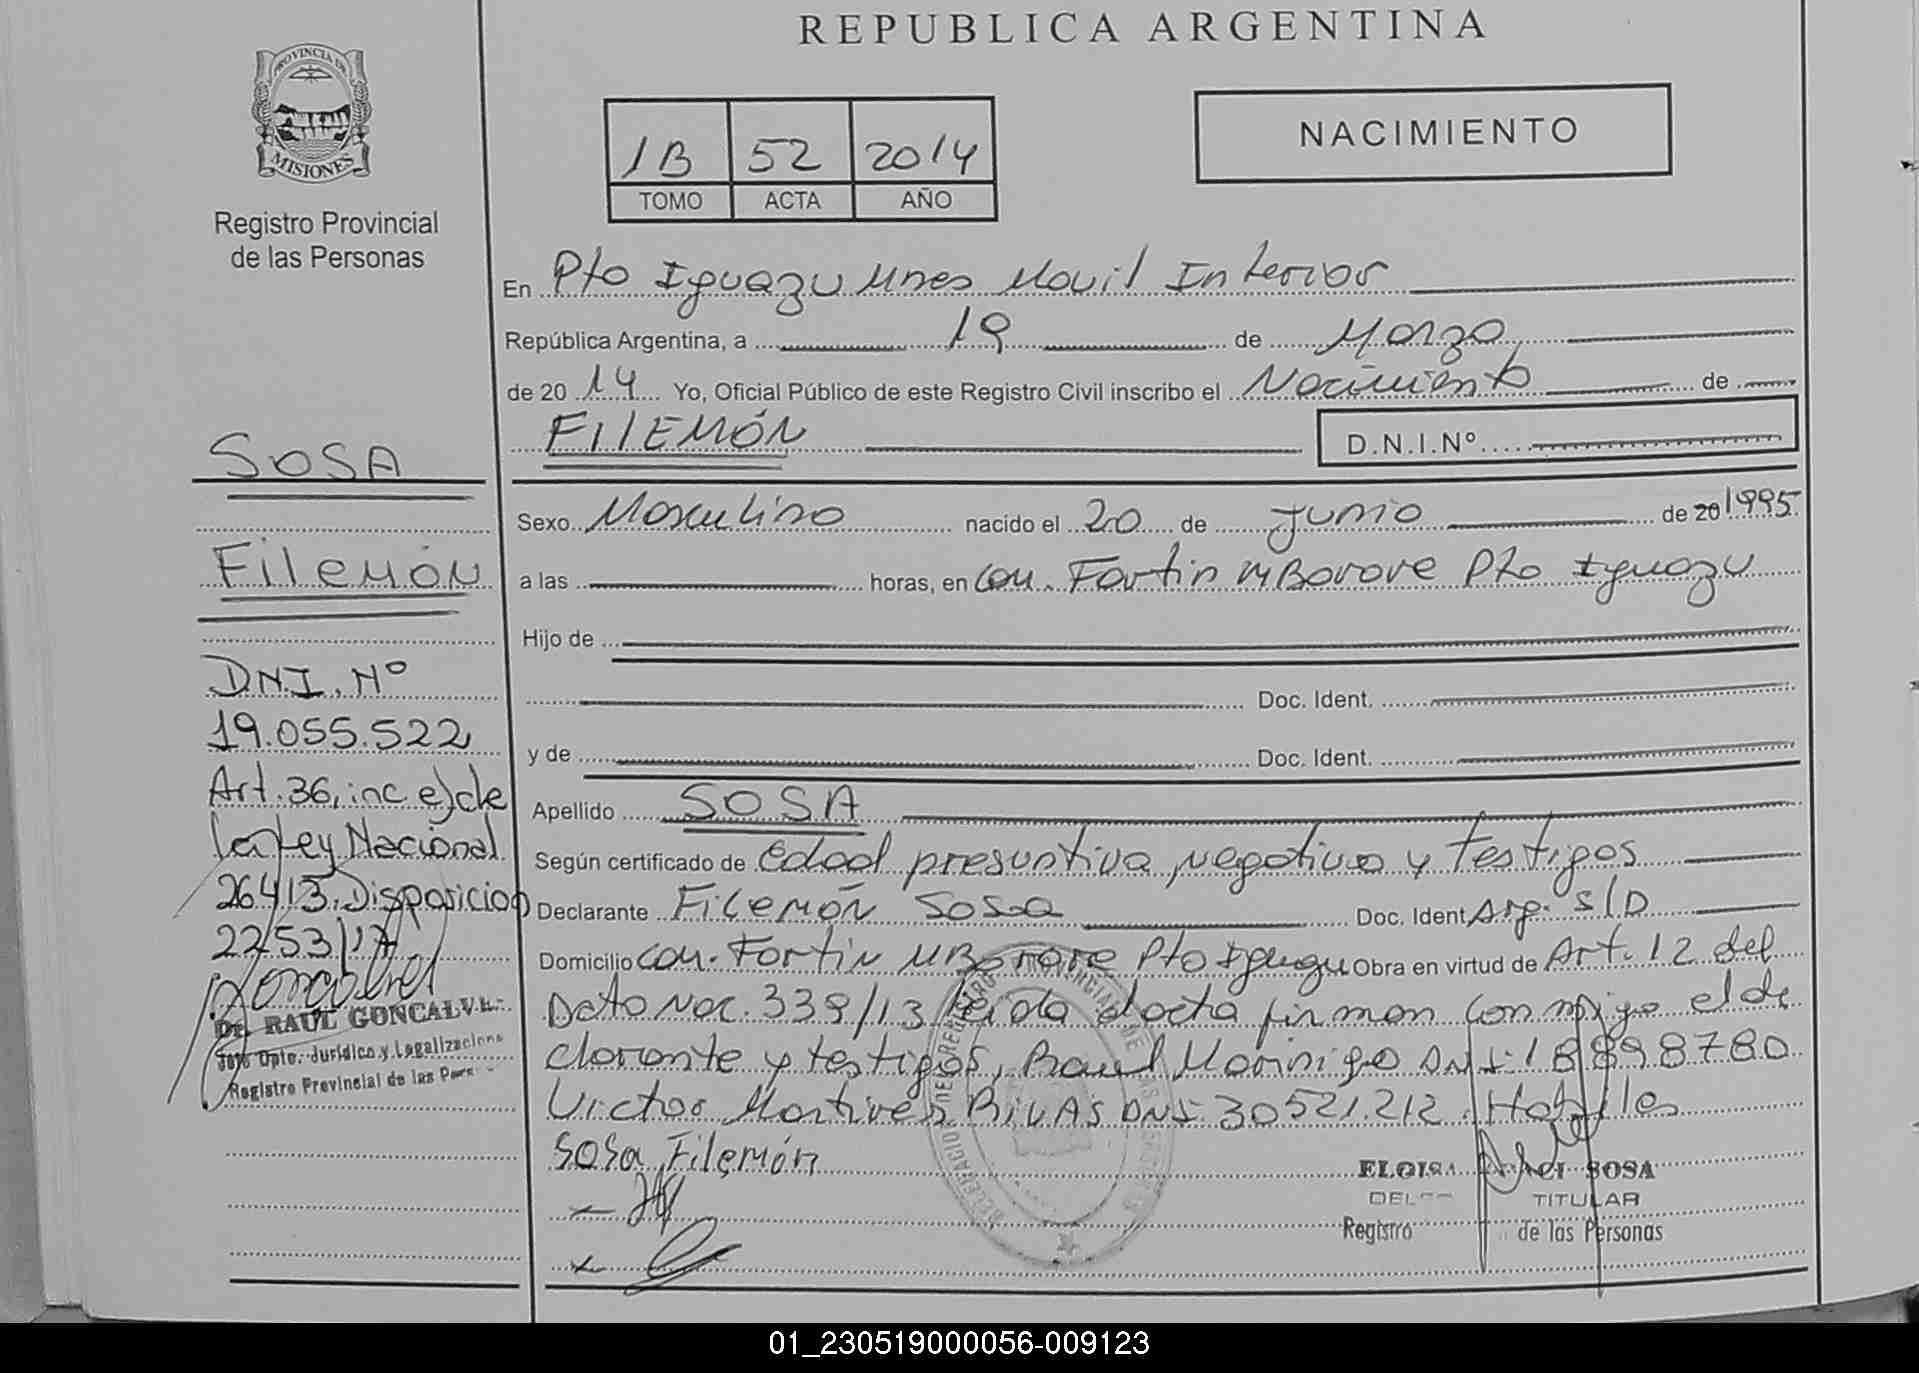 REPUBLICA ARGENTINA
PROVINCIA DE
MISIONES
Registro Provincial
de las Personas
1B 52 2014
TOMO ACTA AÑO
NACIMIENTO
En Pto Iguazu Mnes Movil Interior
República Argentina, a 19 de Marzo
de 20 14 Yo, Oficial Público de este Registro Civil inscribo el Nacimiento de
FILEMÓN
D.N.I.Nº
Sexo Masculino nacido el 20 de Junio de 20 1995
a las horas, en Com. Fortin MBorore Pto Iguazu
Hijo de
Doc. Ident.
y de Doc. Ident.
Apellido SOSA
Según certificado de edad presuntiva, negativo y testigos
Declarante Filemón Sosa Doc. Ident Arg. S/D
Domicilio Com. Fortin MBorore Pto Iguazu Obra en virtud de Art. 12 del
Dcto Nac. 339/13 leida el acta firman conmigo el de
clarante y testigos, Raul Morinigo DNI 18898780
Victor Martines RIVAS DNI 30521.212. Habiles
Sosa, Filemón
ELOISA SOSA
TITULAR
Registro de las Personas
SOSA
Filemón
DNI. Nº
19.055.522
Art. 36, inc e) de
la Ley Nacional
26413. Disposicion
2253/17.
Dr. RAUL GONCALVES
Jefe Dpto. Jurídico y Legalizaciones
Registro Provincial de las Pers
01_230519000056-009123